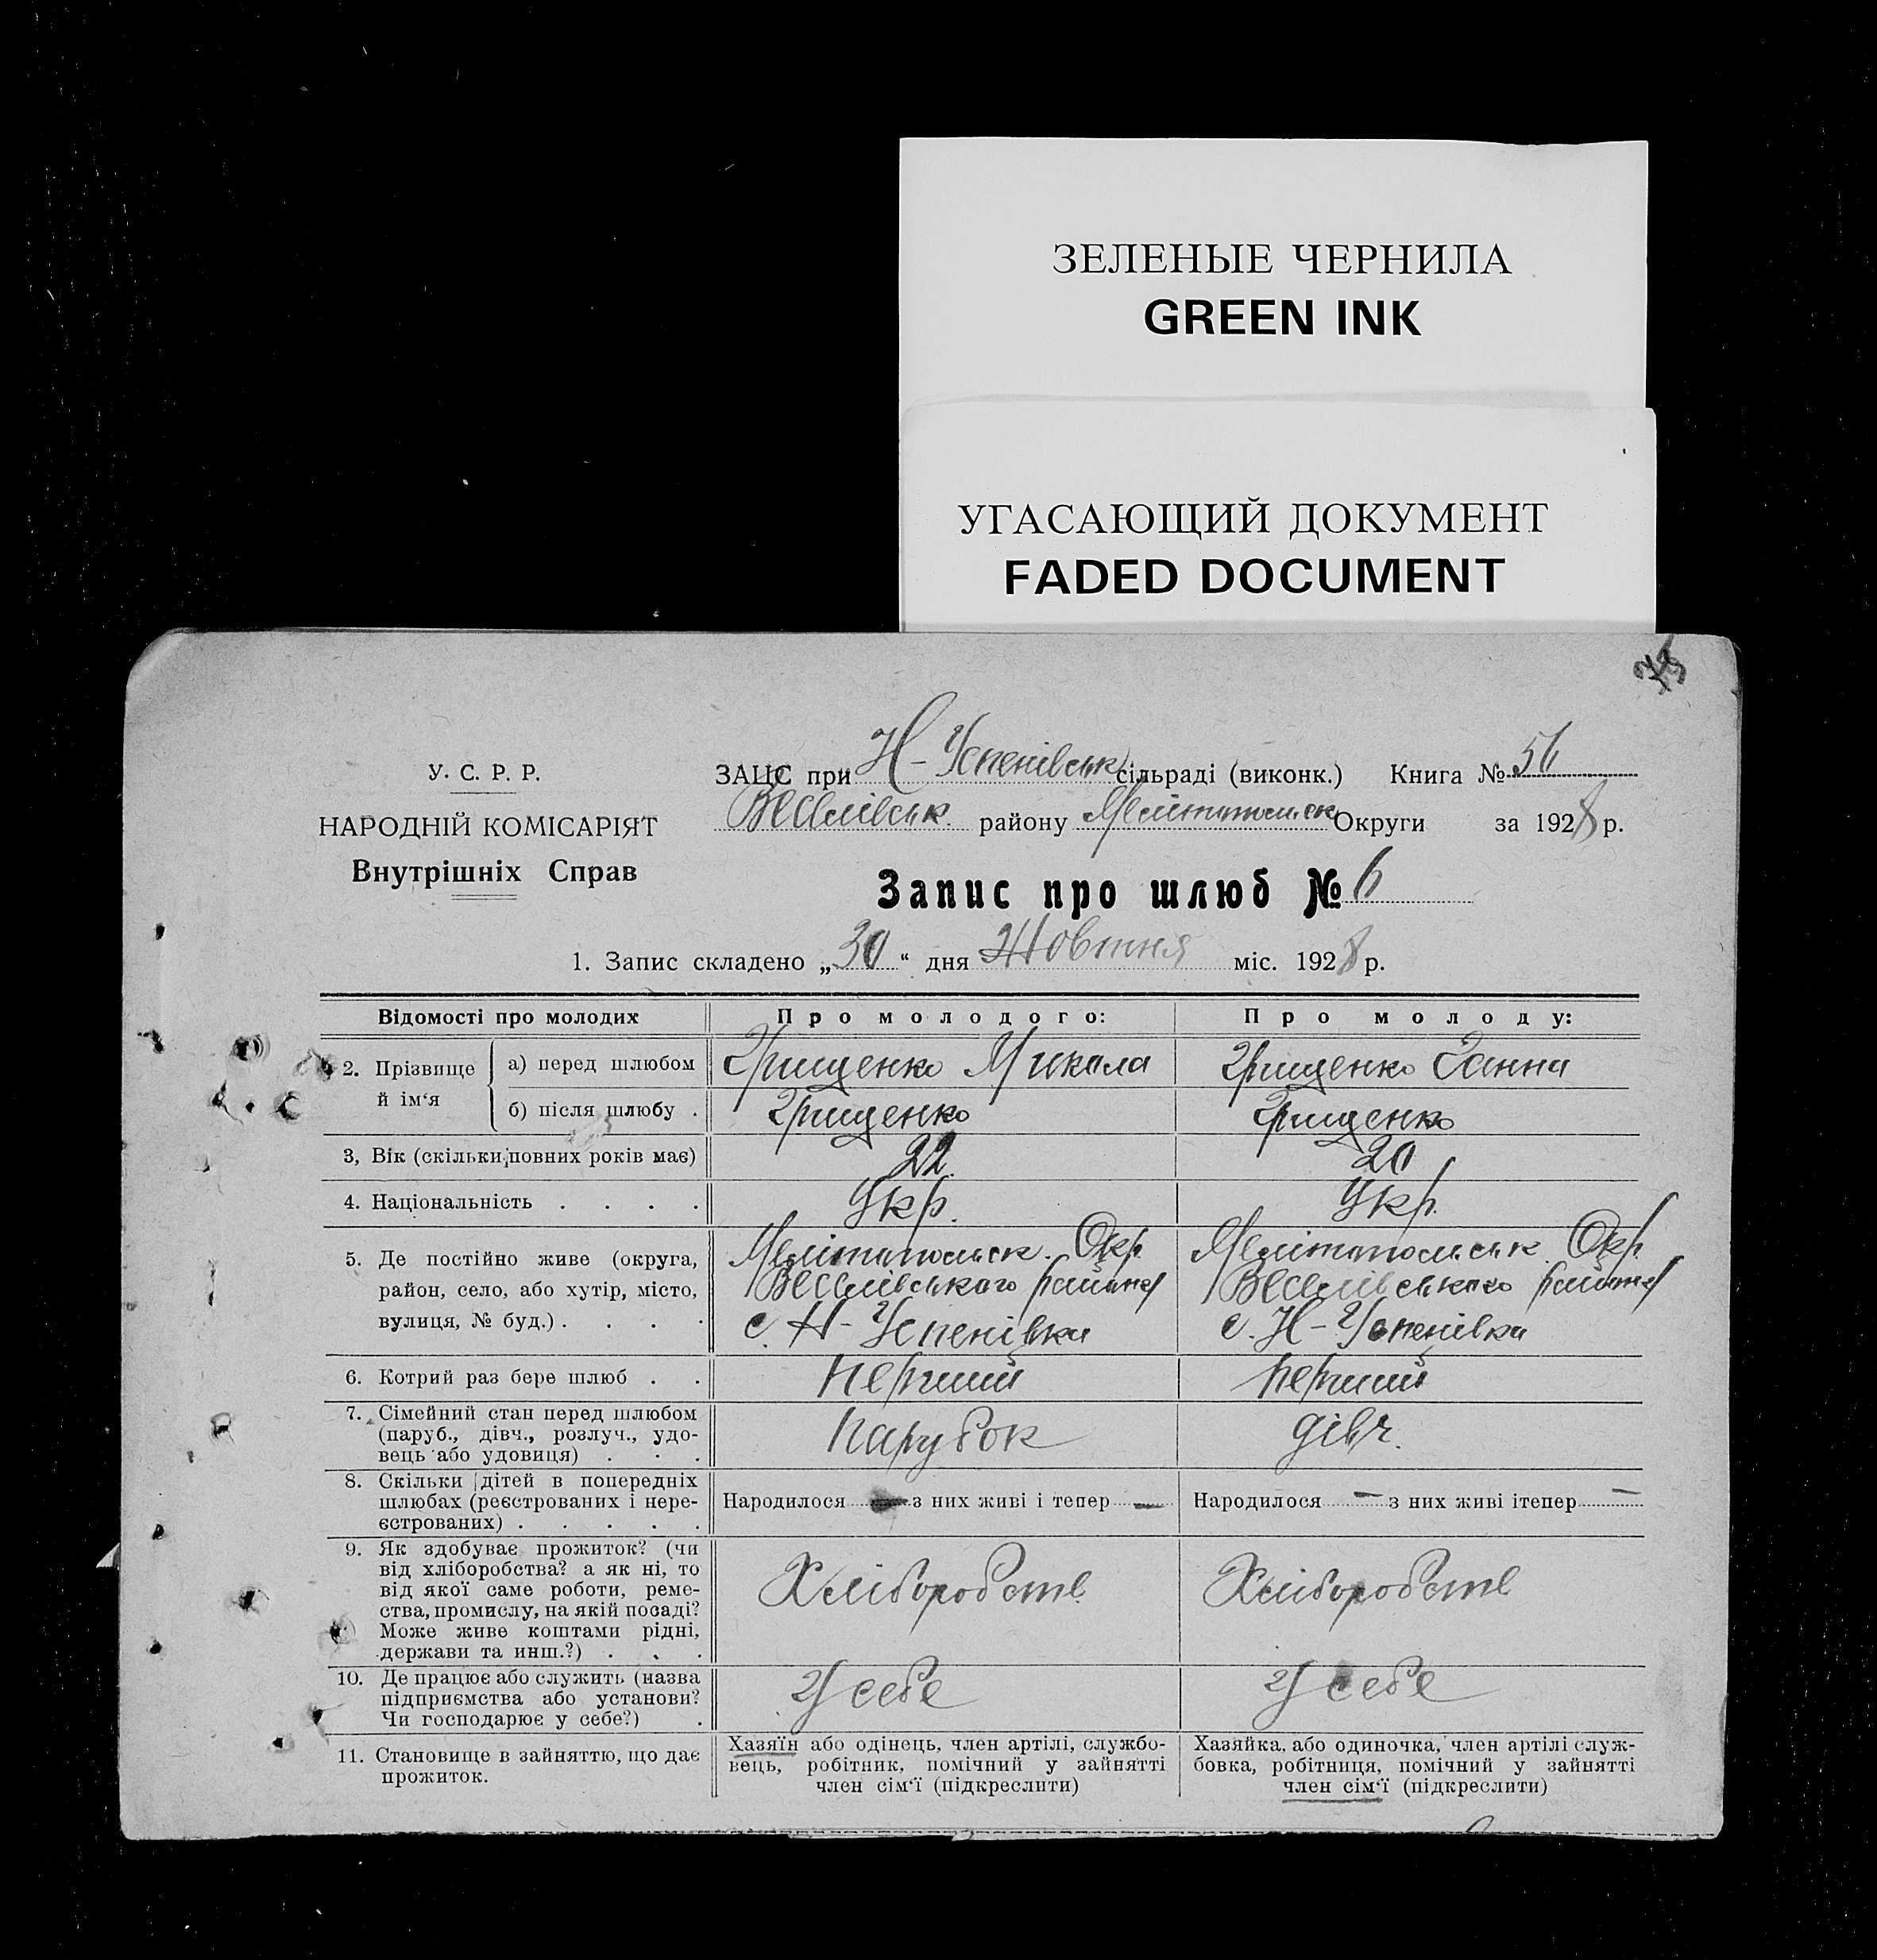 ЗЕЛЕНЫЕ ЧЕРНИЛА
GREEN INK
УГАСАЮЩИЙ ДОКУМЕНТ
FADED DOCUMENT
У. С. Р. Р.
НАРОДНІЙ КОМІСАРІЯТ
Внутрішніх Справ
ЗАЦС при Н-Успенівськ сільраді (виконк.) Книга №
Веселівськ. району Мелітопольськ Округи за 1928 р.
Запис про шлюб № 6
1. Запис складено „30“ дня Жовтня міс. 1928 р.
Відомості про молодих Про молодого: Про молоду:
2. Прізвище й ім‘я
а) перед шлюбом Грищенко Микола Грищенко Ганна
б) після шлюбу . Грищенко Грищенко
3, Вік (скільки повних років має) 22. 20
4. Національність . . . . Укр. Укр.
5. Де постійно живе (округа, Мелітопольськ. Окр. Мелітопольськ. Окр.
район, село, або хутір, місто, Веселівського району Веселівського району
вулиця, № буд.) . . . . с. Н-Успенівка с. Н-Успенівка
6. Котрий раз бере шлюб . . перший перший
7. Сімейний стан перед шлюбом
(паруб., дівч., розлуч., удо- Парубок дівч.
вець або удовиця) . . .
8. Скільки дітей в попередніх
шлюбах (реєстрованих і нере- Народилося з них живі і тепер — Народилося — з них живі ітепер —
єстрованих) . . . . .
9. Як здобуває прожиток? (чи
від хліборобства? а як ні, то
від якої саме роботи, реме- Хліборобств. Хліборобств
ства, промислу, на якій посаді?
Може живе коштами рідні,
держави та инш.?) . . .
10. Де працює або служить (назва У себе У себе
підприємства або установи?
Чи господарює у себе?) .
11. Становище в зайняттю, що дає
прожиток.
Хазяїн або одінець, член артілі, службо-
вець, робітник, помічний у зайнятті
член сім‘ї (підкреслити)
Хазяйка, або одиночка, член артілі служ-
бовка, робітниця, помічний у зайнятті
член сім‘ї (підкреслити)